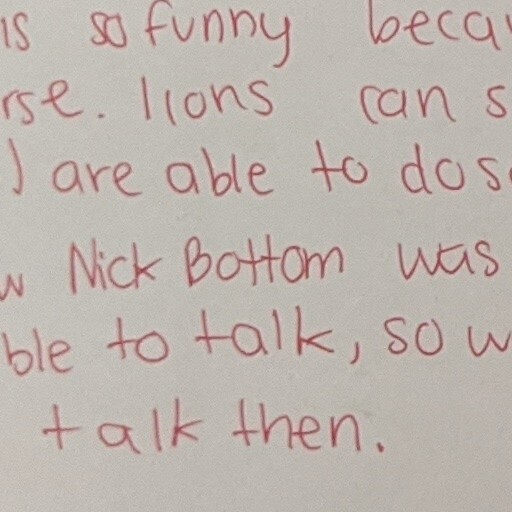 is so funny becau
rse. lions can s
) are able to dos
w Nick Bottom was
ble to talk, so w
talk then.